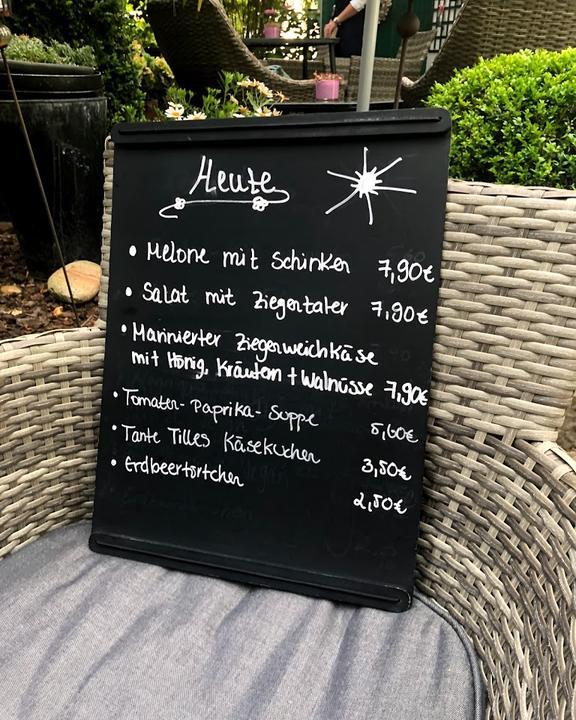 Heute
• Melone mit Schinken 7,90€
• Salat mit Ziegentaler 7,90€
• Marinierter Ziegenweichkäse
mit Honig, Kräutern + Walnüsse 7,90€
• Tomaten-Paprika-Suppe 5,60€
• Tante Tilles Käsekuchen 3,50€
• Erdbeertörtchen 2,50€